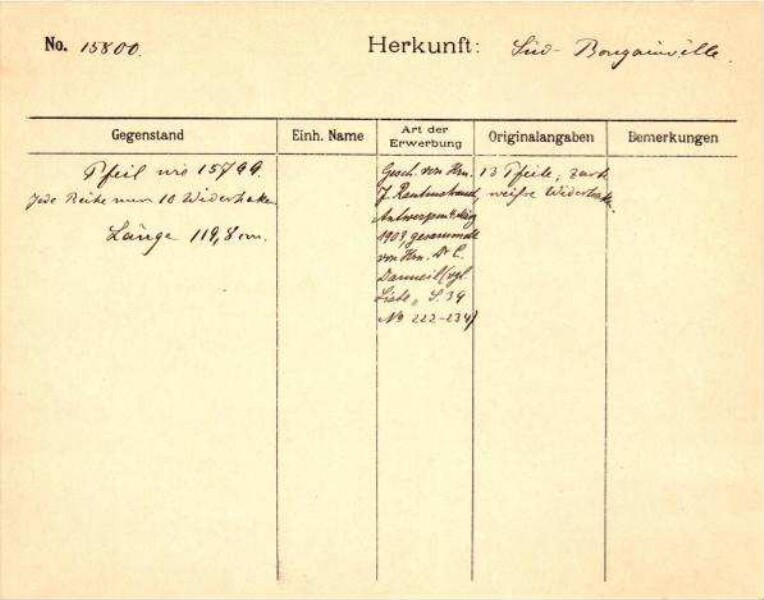 No. 15800. Herkunft: Süd-Bougainville.
Gegenstand Einh. Name Art der Erwerbung Originalangaben Bemerkungen
Pfeil wie 15799.
Jede Reihe nur 10 Widerhaken
Länge 119,8 cm.
Gesch. von Hrn.
J. Rautenstrauch,
Antwerpen
1909, gesammelt
von Hrn. Dr C.
Danneil (vgl.
Liste, S. 39
No 222-234)
13 Pfeile,
weisse Widerhaken.